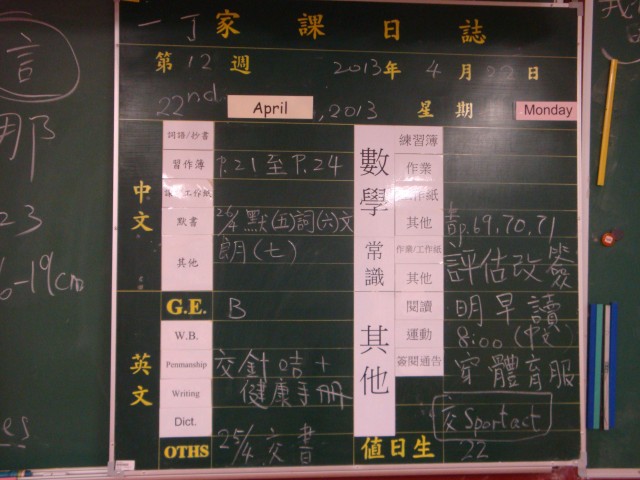 一丁家課日誌
第12週 2013年4月22日
22nd April, 2013 星期 Monday
中文
詞語/抄書
習作簿 P.21至P.24
工作紙
默書 26/4 默(五)詞(六)文
其他 朗(七)
英文
G.E. B
W.B.
Penmanship 交針咭+
Writing 健康手冊
Dict.
OTHS 25/4 交書
數學
練習簿
作業
工作紙
其他 p.69,70,71
常識
作業/工作紙
其他 評估改簽
其他
閱讀 明早讀
運動 8:00(中文)
簽閱通告 穿體育服
交Sportact
值日生 22
言
那
23
6-19cm
es
我